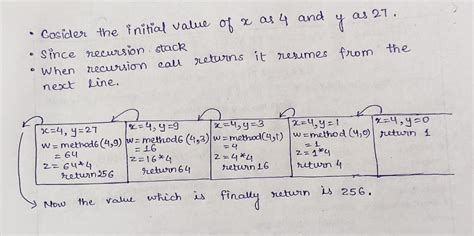 • Cosider the initial value of x as 4 and y as 27.
• Since recursion stack
• When recursion call returns it resumes from the
next line.
x=4, y=27
w=method6(4,9)
=64
z=64*4
return256
x=4, y=9
w=method6(4,3)
=16
z=16*4
return64
x=4, y=3
w=method(4,1)
=4
z=4*4
return16
x=4, y=1
w=method(4,0)
=1
z=1*4
return 4
x=4, y=0
return 1
Now the value which is finally return is 256.